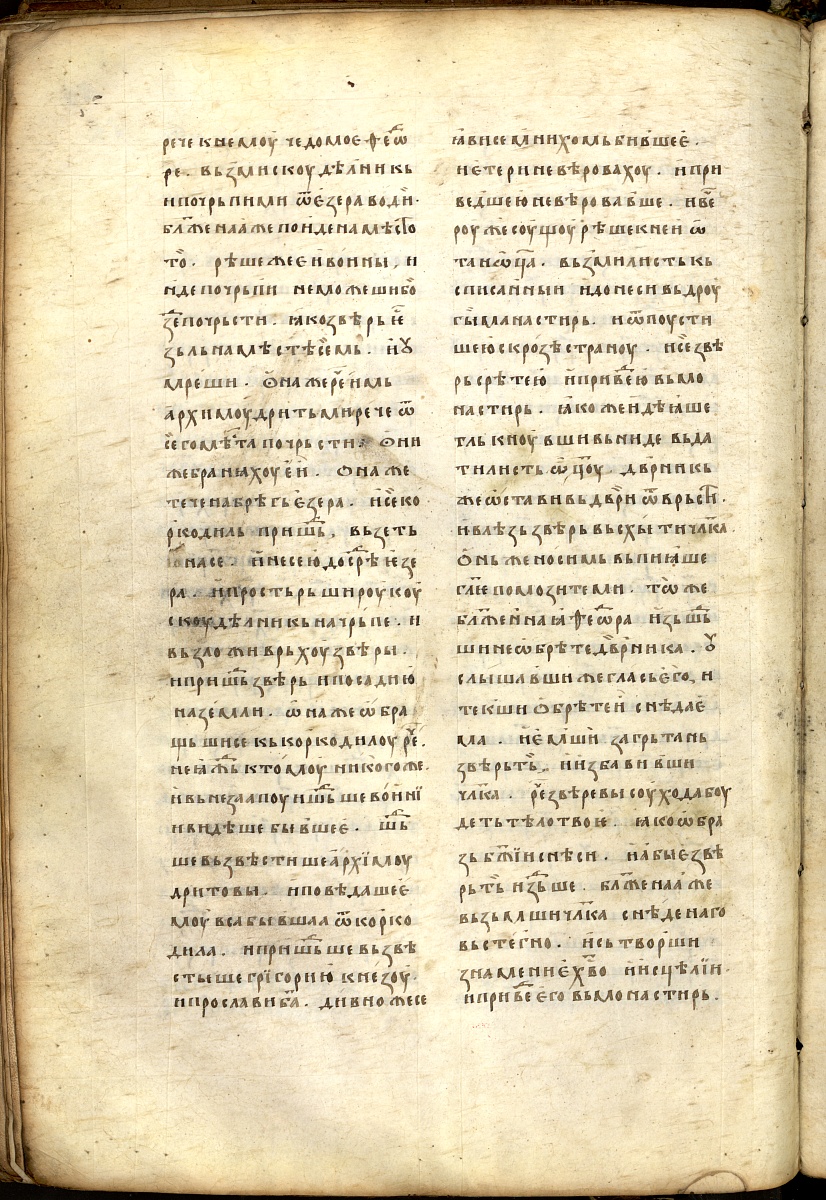 рече к немоу чедо мое ѳеѡ
ре. възми скоудѣлникь
и почрьпи ми ѿ езера води.
блжена же поиде на мѣсто
то. рѣше же еи воини, и
иде почрьпи не може ши бо
зде почрьсти. ꙗко звѣрь ѥ
зьль на мѣстѣ семь. и ꙋ
мреши. ѡна же рече имь
архимоудрить ми рече ѿ
сего мѣста почрьсти. ѡни
же бранꙗхоу еи. ѡна же
тече на брѣгь езера. и се ко
ркодиль пришьⷣ, възеть
ю на се. и несе ю до срѣⷣ езе
ра. и простьрь широу коу
скоудѣлникь начрьпе. и
възложи врьхоу звѣры.
и пришьⷣ звѣрь и посади ю
на земли. ѡна же ѡбра
щьши се кь коркодилоу рече.
не ꙗжⷣь кто моу никого же.
и вьнезапоу ишьⷣше воини
и видѣше бывшее. шьⷣ
ше възвѣстише архимоу
дритовы. и повѣдаше е
моу вса бывшаа ѿ корко
дила. и пришьⷣше възвѣ
стыше григорию кнезоу.
и прослави ба҃. дивно же се
ꙗви се мнихомь бившее.
и етери не вѣровахоу. и при
ведше ю невѣровавше. и вечⷭе
роу же соущоу рѣше к неи ѡ
таи ѡц҃а. възми листь кь
списанныи и донеси вь дроу
гы манастирь. и ѿпоусти
ше ю скрозѣ страноу. и се звѣ
рь срѣте ю и приведⷣе ю вь мо
настирь. ꙗко же идѣꙗше
тлькноувши вьниде вьда
ти листь ѡц҃оу. дврникь
же ѡстави вь дври ѿврьсти.
и влѣзь звѣрь вьсхыти чл҃ка.
ѡнь же носимь вьпиꙗше
гл҃ѥ помозите ми. то же
блжⷣеннаꙗ ѳеѡⷣра изьшьⷣ
ши не ѡбрѣте дврника. ꙋ
слышавши же глась его, и
текши ѡбрѣте и снѣдае
ма. и емши за грьтань
звѣрьть. и избавивши
чл҃ка. рече звѣре вы соухо да боу
деть тѣло твоѥ. ꙗко ѡбра
зь бж҃ии снѣси. и абые звѣ
рьть издьше. блжена же
възьмши чл҃ка снѣденаго
вь стегно. и сьтворши
знамение хв҃о и исцѣлии.
и приведⷣе его вь монастирь.